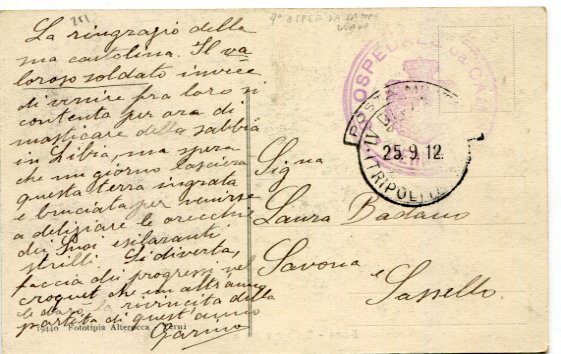 211
9° OSPED. DA CAMPO
La ringrazio della
sua cartolina. Il va=
loroso soldato invece
di venire fra loro si
contenta per ora di
masticare della sabbia
in Libia, ma spera
che un giorno lascierà
questa terra ingrata
e bruciata per venirse
a deliziare le orecchie
dei suoi esilaranti
strilli. Si diverta,
faccia dei progressi nel
croquet che un altr'anno
le darò la rivincita della
partita di quest'anno
Garino
19440 Fototipia Alterocca Terni
OSPEDALE DA CA
POSTA MILITARE
25.9.12.
(TRIPOLI
Sig.na
Laura Badano
Savona
Sassello